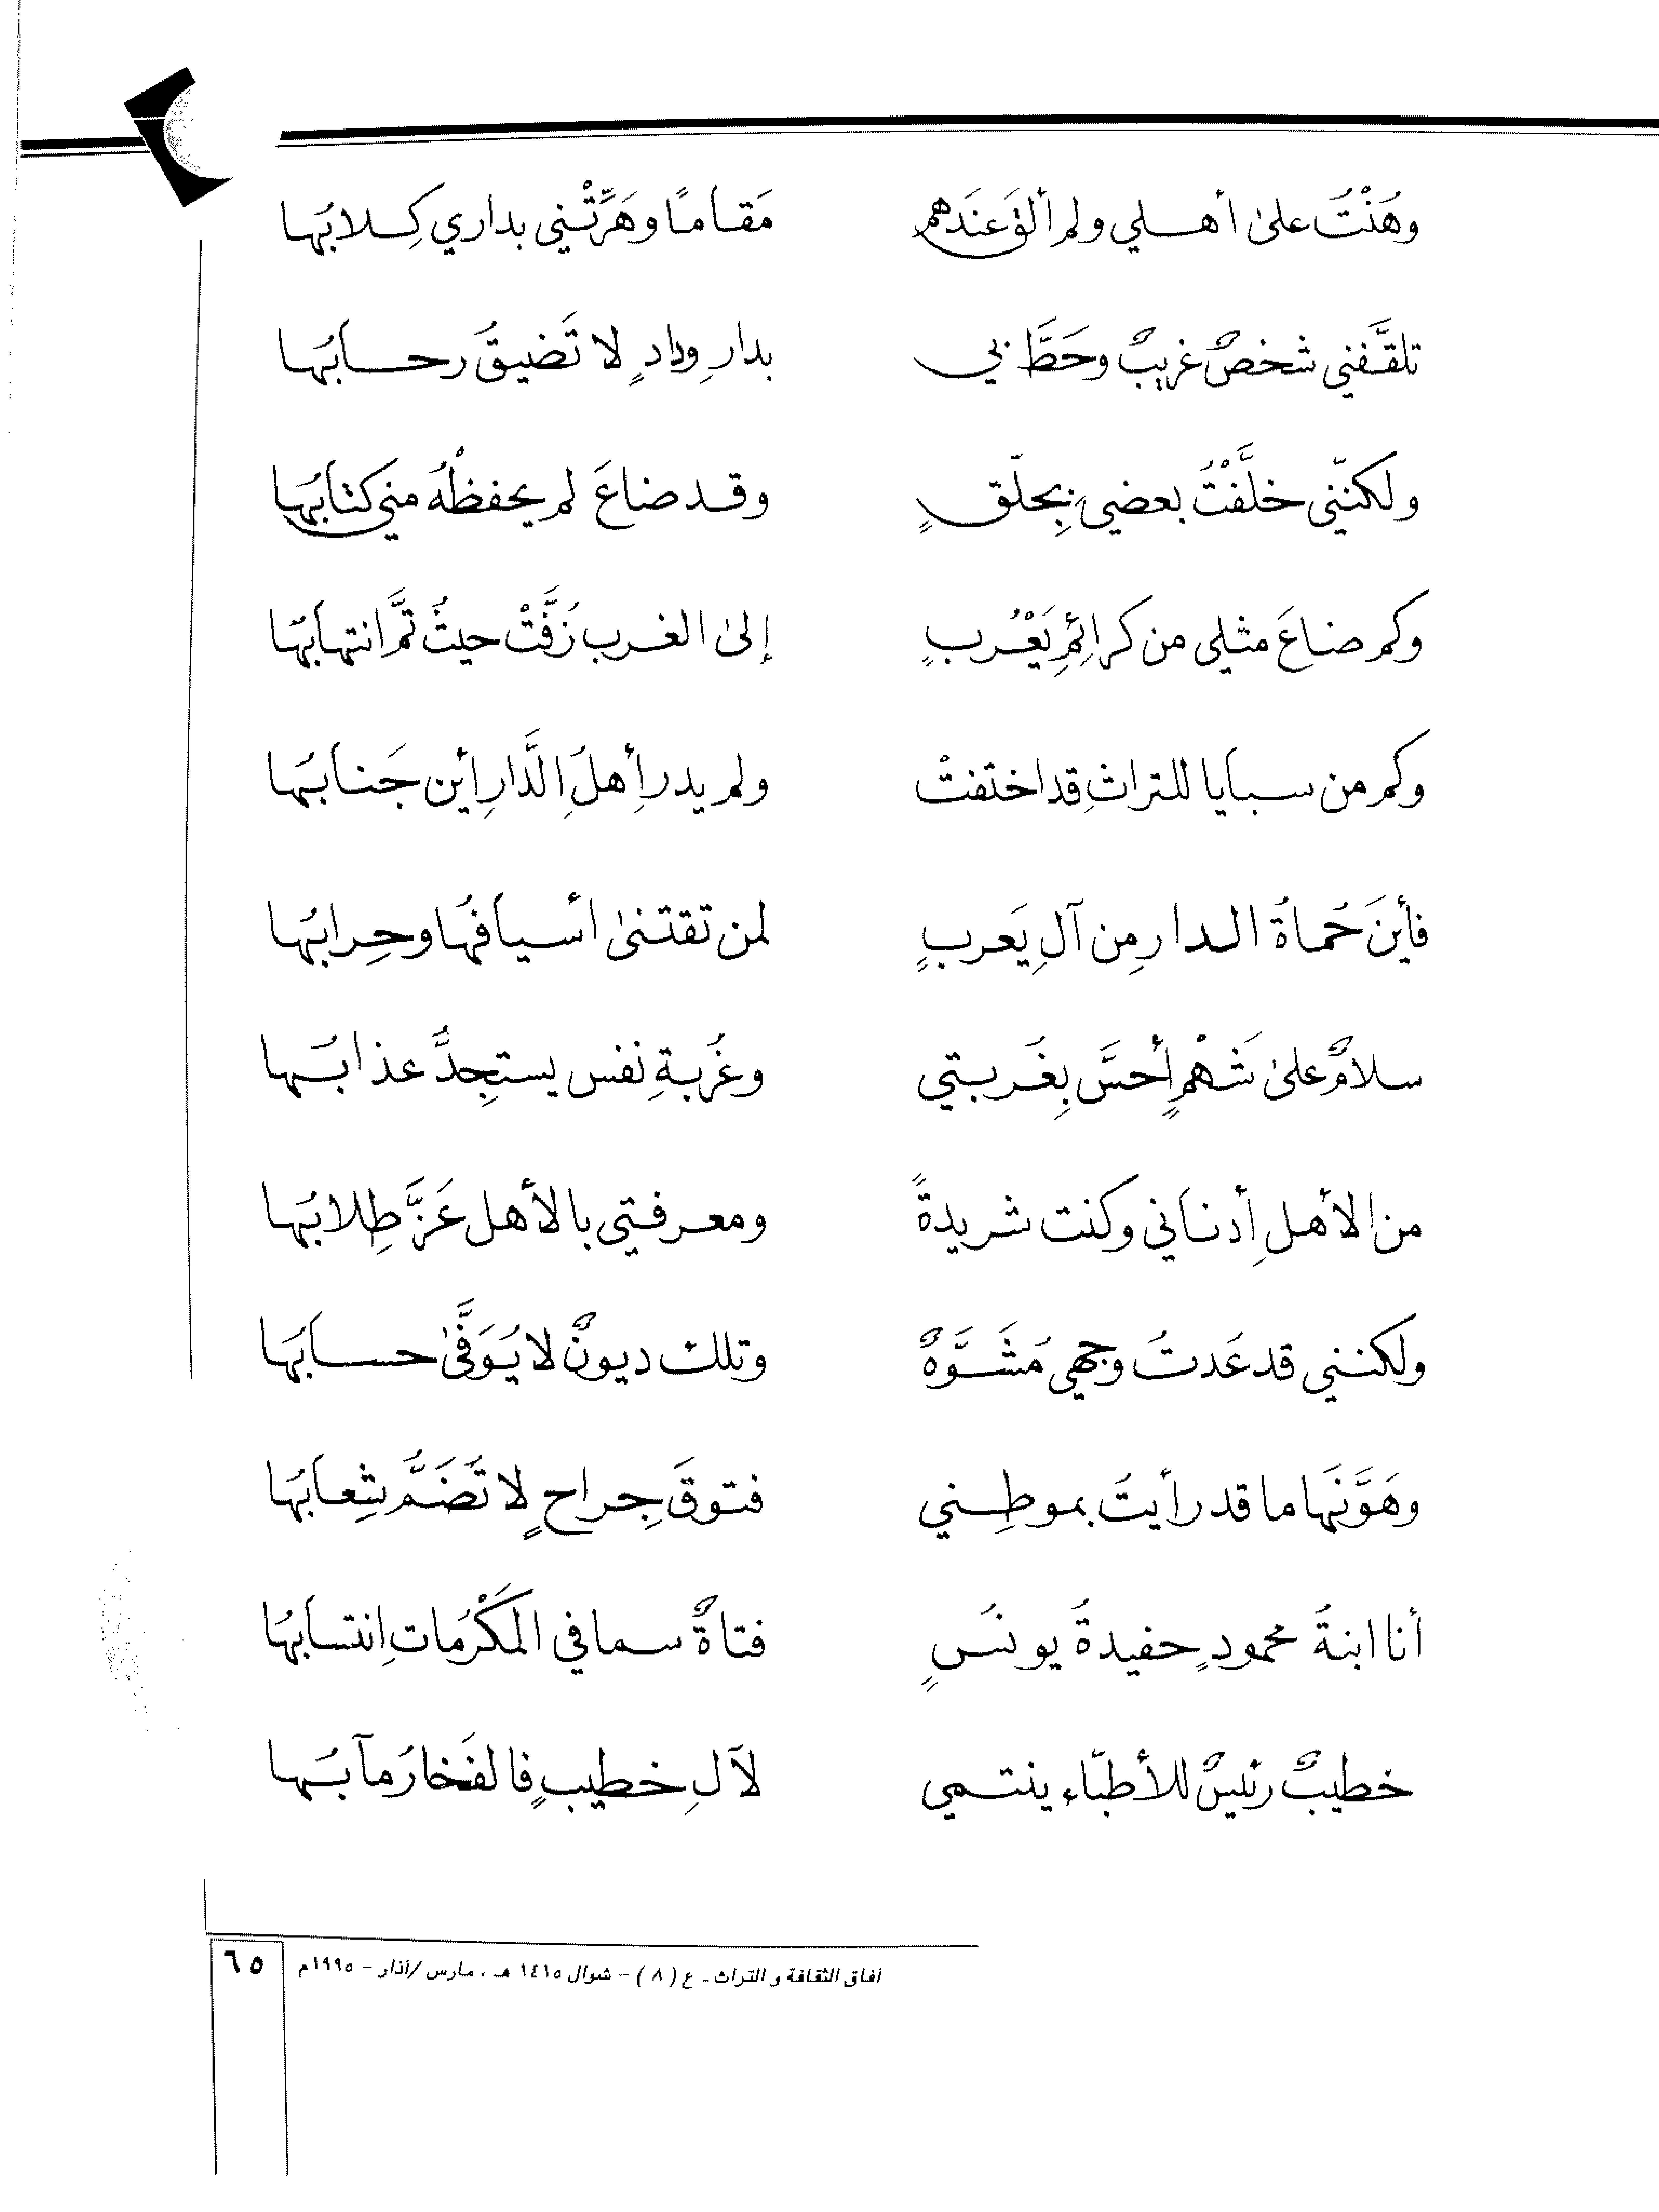 وهُنْتُ علىٰ أهلي ولم ألقَ عندَهم مَقامًا وهَرَّتْني بداري كِلابُها
تلقَّفني شخصٌ غريبٌ وحَطَّ بي بدارِ ودادٍ لا تَضيقُ رحابُها
ولكنّني خلَّفْتُ بعضي بِجلّقٍ وقد ضاعَ لم يحفظْهُ مني كتابُها
وكم ضاعَ مثلي من كرائِمِ يَعْرُبٍ إلىٰ الغرب زُفَّتْ حيثُ تَمَّ انتهابُها
وكم من سبايا للتراثِ قد اختَفتْ ولم يدرِ أهلُ الدَّارِ أين جَنابُها
فأينَ حُماةُ الدارِ مِن آلِ يَعربٍ لمن تقتنىٰ أسيافُها وحِرابُها
سلامٌ علىٰ شَهْمٍ أحسَّ بِغُربتي وغُربةِ نفس يستجِدُّ عذابُها
من الأهلِ أدناني وكنت شريدةً ومعرفتي بالأهل عَزَّ طِلابُها
ولكنني قد عُدتُ وجهي مُشَوَّهٌ وتلك ديونٌ لا يُوَفَّىٰ حسابُها
وهَوَّنَها ما قد رأيتُ بموطِني فتوقَ جِراحٍ لا تُضَمُّ شِعابُها
أنا ابنةُ محمودٍ حفيدةُ يونُسٍ فتاةٌ سما في المَكْرُمات اِنتسابُها
خطيبٌ رئيسٌ للأطبّاء ينتمي لآلِ خطيبٍ فالفَخارُ مآبُها
آفاق الثقافة و التراث ـ ع ( ٨ ) - شوال ١٤١٥ هـ ، مارس /آذار - ١٩٩٥م
٦٥